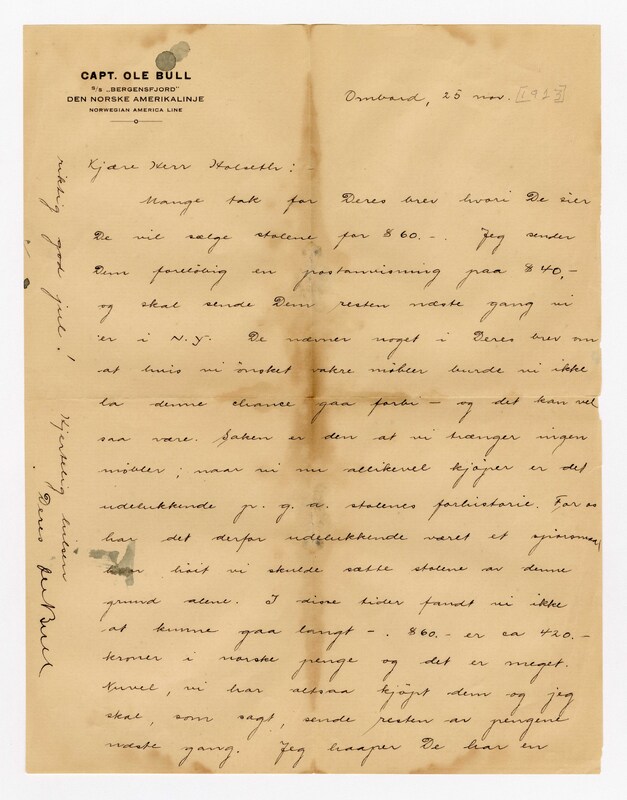 CAPT. OLE BULL
S/S „BERGENSFJORD"
DEN NORSKE AMERIKALINJE
NORWEGIAN AMERICA LINE
Ombord, 25 nov. [1923]
Kjære Herr Holseth: -
Mange tak for Deres brev hvori De sier
De vil sælge stolene for $60.-. Jeg sender
Dem foreløbig en postanvisning paa $40,-
og skal sende Dem resten næste gang vi
er i N.Y. De nævner noget i Deres brev om
at hvis vi ønsket vakre møbler burde vi ikke
la denne chance gaa forbi - og det kan vel
saa være. Saken er den at vi trænger ingen
møbler; naar vi nu allikevel kjøper er det
udelukkende p.g.a. stolenes forhistorie. For os
har det derfor udelukkende været et spörsmaal
hvor høit vi skulde sætte stolene av denne
grund alene. I disse tider fandt vi ikke
at kunne gaa langt -. $60.- er ca 420.-
kroner i norske penge og det er meget.
Nuvel, vi har altsaa kjøpt dem og jeg
skal, som sagt, sende resten av pengene
næste gang. Jeg haaper De har en
riktig god jul!
Hjertelig hilsen
Deres Ole Bull